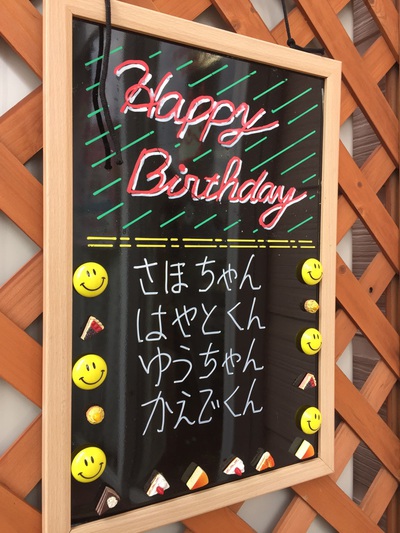 Happy
Birthday
さほちゃん
はやとくん
ゆうちゃん
かえでくん